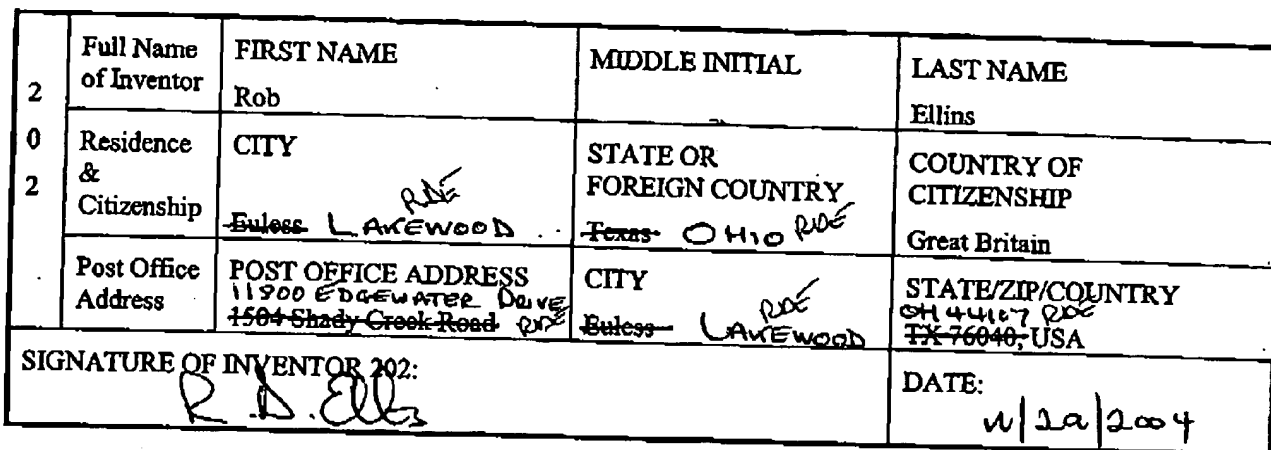 2
0
2
Full Name
of Inventor
FIRST NAME
Rob
MIDDLE INITIAL
LAST NAME
Ellins
Residence
&
Citizenship
CITY
RDE
Euless LAKEWOOD
STATE OR
FOREIGN COUNTRY
Texas OHIO RDE
COUNTRY OF
CITIZENSHIP
Great Britain
Post Office
Address
POST OFFICE ADDRESS
11800 EDGEWATER DRIVE
1504 Shady Creek Road RDE
CITY
RDE
Euless LAKEWOOD
STATE/ZIP/COUNTRY
OH 44107 RDE
TX 76040, USA
SIGNATURE OF INVENTOR 202:
R.D. Ellins
DATE:
2004